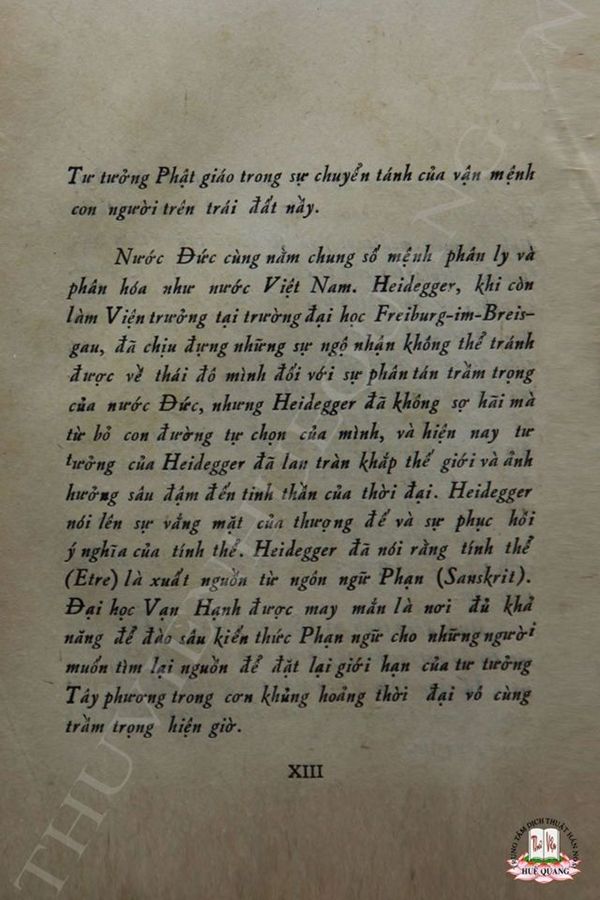 Tư tưởng Phật giáo trong sự chuyển tánh của vận mệnh
con người trên trái đất nầy.
Nước Đức cùng nằm chung số mệnh phân ly và
phân hóa như nước Việt Nam. Heidegger, khi còn
làm Viện trưởng tại trường đại học Freiburg-im-Breis-
gau, đã chịu đựng những sự ngộ nhận không thể tránh
được về thái đô mình đối với sự phân tán trầm trọng
của nước Đức, nhưng Heidegger đã không sợ hãi mà
từ bỏ con đường tự chọn của mình, và hiện nay tư
tưởng của Heidegger đã lan tràn khắp thế giới và ảnh
hưởng sâu đậm đến tinh thần của thời đại. Heidegger
nói lên sự vắng mặt của thượng đế và sự phục hồi
ý nghĩa của tính thể. Heidegger đã nói rằng tính thể
(Etre) là xuất nguồn từ ngôn ngữ Phạn (Sanskrit).
Đại học Vạn Hạnh được may mắn là nơi đủ khả
năng để đào sâu kiến thức Phạn ngữ cho những người
muốn tìm lại nguồn để đặt lại giới hạn của tư tưởng
Tây phương trong cơn khủng hoảng thời đại vô cùng
trầm trọng hiện giờ.
XIII
TRUNG TÂM DỊCH THUẬT HÁN NÔM
HUỆ QUANG